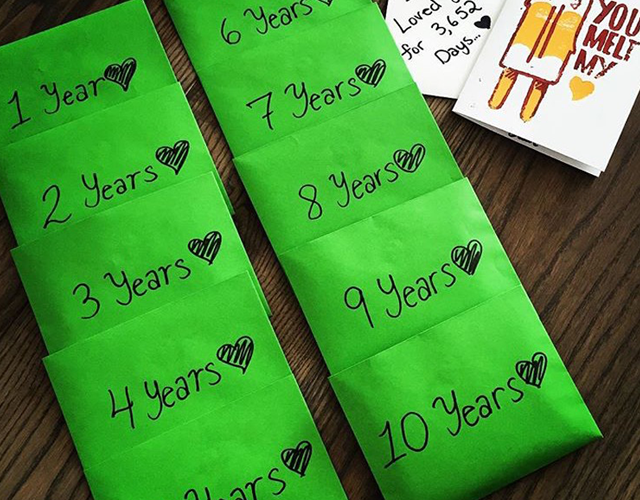 1 Year
2 Years
3 Years
4 Years
Years
6 Years
7 Years
8 Years
9 Years
10 Years
Loved
for 3,652
Days...
YOU
MELT
MY